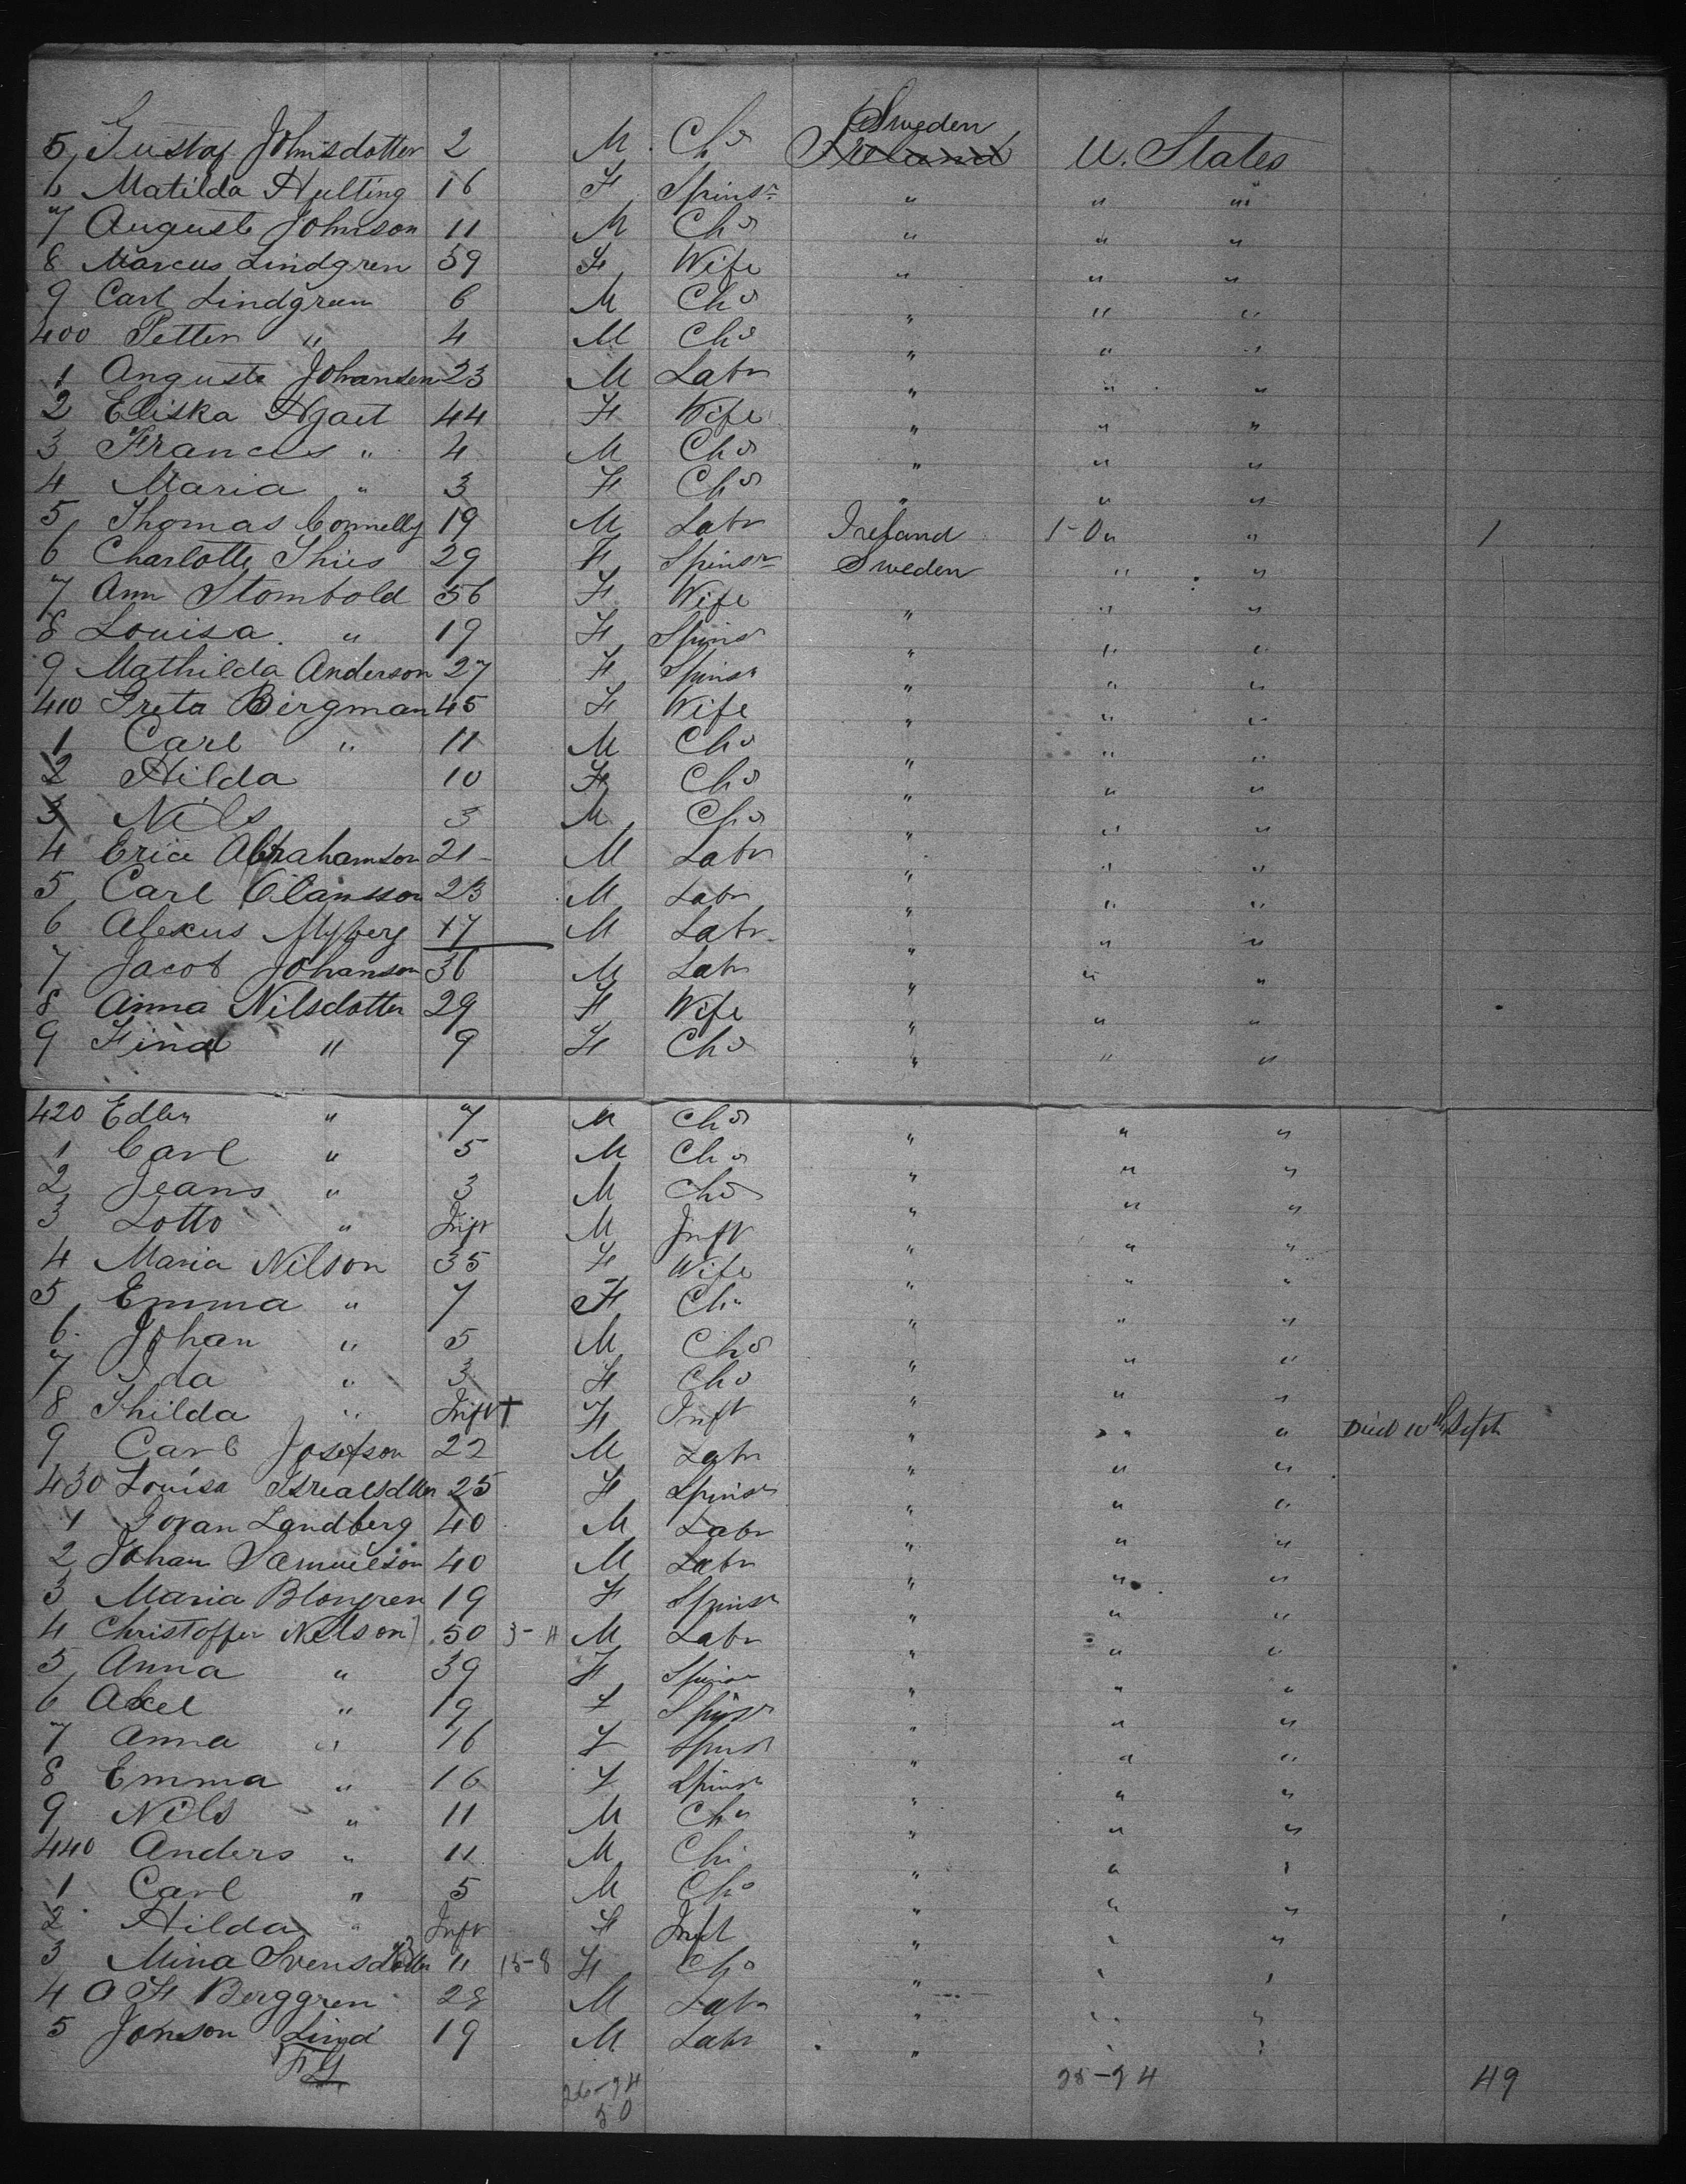 Sweden
5 Gustaf Johnsdotter 2 M Chd Ireland U. States
6 Matilda Hulting 16 F Spinsr " " "
7 Auguste Johnson 11 M Chd " " "
8 Marcus Lindgren 59 F Wife " " "
9 Carl Lindgren 6 M Chd " " "
400 Petter " 4 M Chd " " "
1 Auguste Johansen 23 M Labr " " "
2 Eliska Hjaet 44 F Wife " " "
3 Francis " 4 M Chd " " "
4 Maria " 3 F Chd " " "
5 Thomas Connelly 19 M Labr Ireland 1-0 " " 1
6 Charlotte Thies 29 F Spinsr Sweden " "
7 Ann Stombold 56 F Wife " " "
8 Louisa " 19 F Spinsr " " "
9 Mathilda Anderson 27 F Spinsr " " "
410 Greta Bergman 45 F Wife " " "
1 Carl " 11 M Chd " " "
2 Hilda 10 F Chd " " "
3 Nils 3 M Chd " " "
4 Erice Abrahamson 21 M Labr " " "
5 Carl Olansson 23 M Labr " " "
6 Alexus Myberg 17 M Labr " " "
7 Jacob Johanson 36 M Labr " " "
8 Anna Nilsdotter 29 F Wife " " "
9 Fina " 9 F Chd " " "
420 Edler " 7 M Chd " " "
1 Carl " 5 M Chd " " "
2 Jeans " 3 M Chd " " "
3 Lotto " Inft M Inft " " "
4 Maria Nilson 35 F Wife " " "
5 Emma " 7 F Chd " " "
6 Johan " 5 M Chd " " "
7 Ida " 3 F Chd " " "
8 Thilda " Inft + F Inft " " " Died 10th Sept
9 Carl Josefson 22 M Labr " " "
430 Louisa Isrealsdtter 25 F Spinsr " " "
1 Goran Landberg 40 M Labr " " "
2 Johan Samuelson 40 M Labr " " "
3 Maria Blongren 19 F Spinsr " " "
4 Christoffer Nelson 50 3-H M Labr " " "
5 Anna " 39 F Spinsr " " "
6 Axel " 19 F Spinsr " " "
7 Anna " 16 F Spinsr " " "
8 Emma " 16 F Spinsr " " "
9 Nils " 11 M Chd " " "
440 Anders " 11 M Chd " " "
1 Carl " 5 M Chd " " "
2 Hilda " Inft F Inft " " "
3 Mina Svensdotter 11 15-8 F Chd " " "
4 O F Berggren 28 M Labr " " "
5 Jonson Lind 19 M Labr " " "
26-24 25-24 49
50